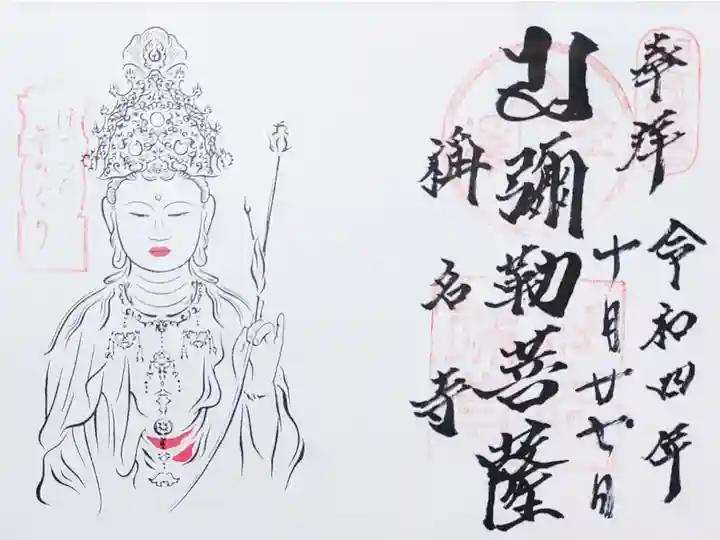 奉拝
令和四年
十月廿七日
彌勒菩薩
稱名寺